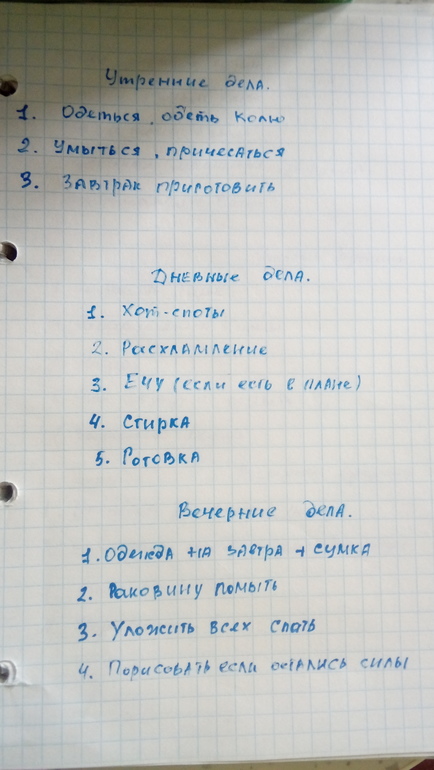 Утренние дела.
1. Одеться, одеть Колю
2. Умыться, причесаться
3. Завтрак приготовить
Дневные дела.
1. Хот-споты
2. Расхламление
3. ЕЧУ (если есть в плане)
4. Стирка
5. Готовка
Вечерние дела.
1. Одежда на завтра + сумка
2. Раковину помыть
3. Уложить всех спать
4. Порисовать если остались силы